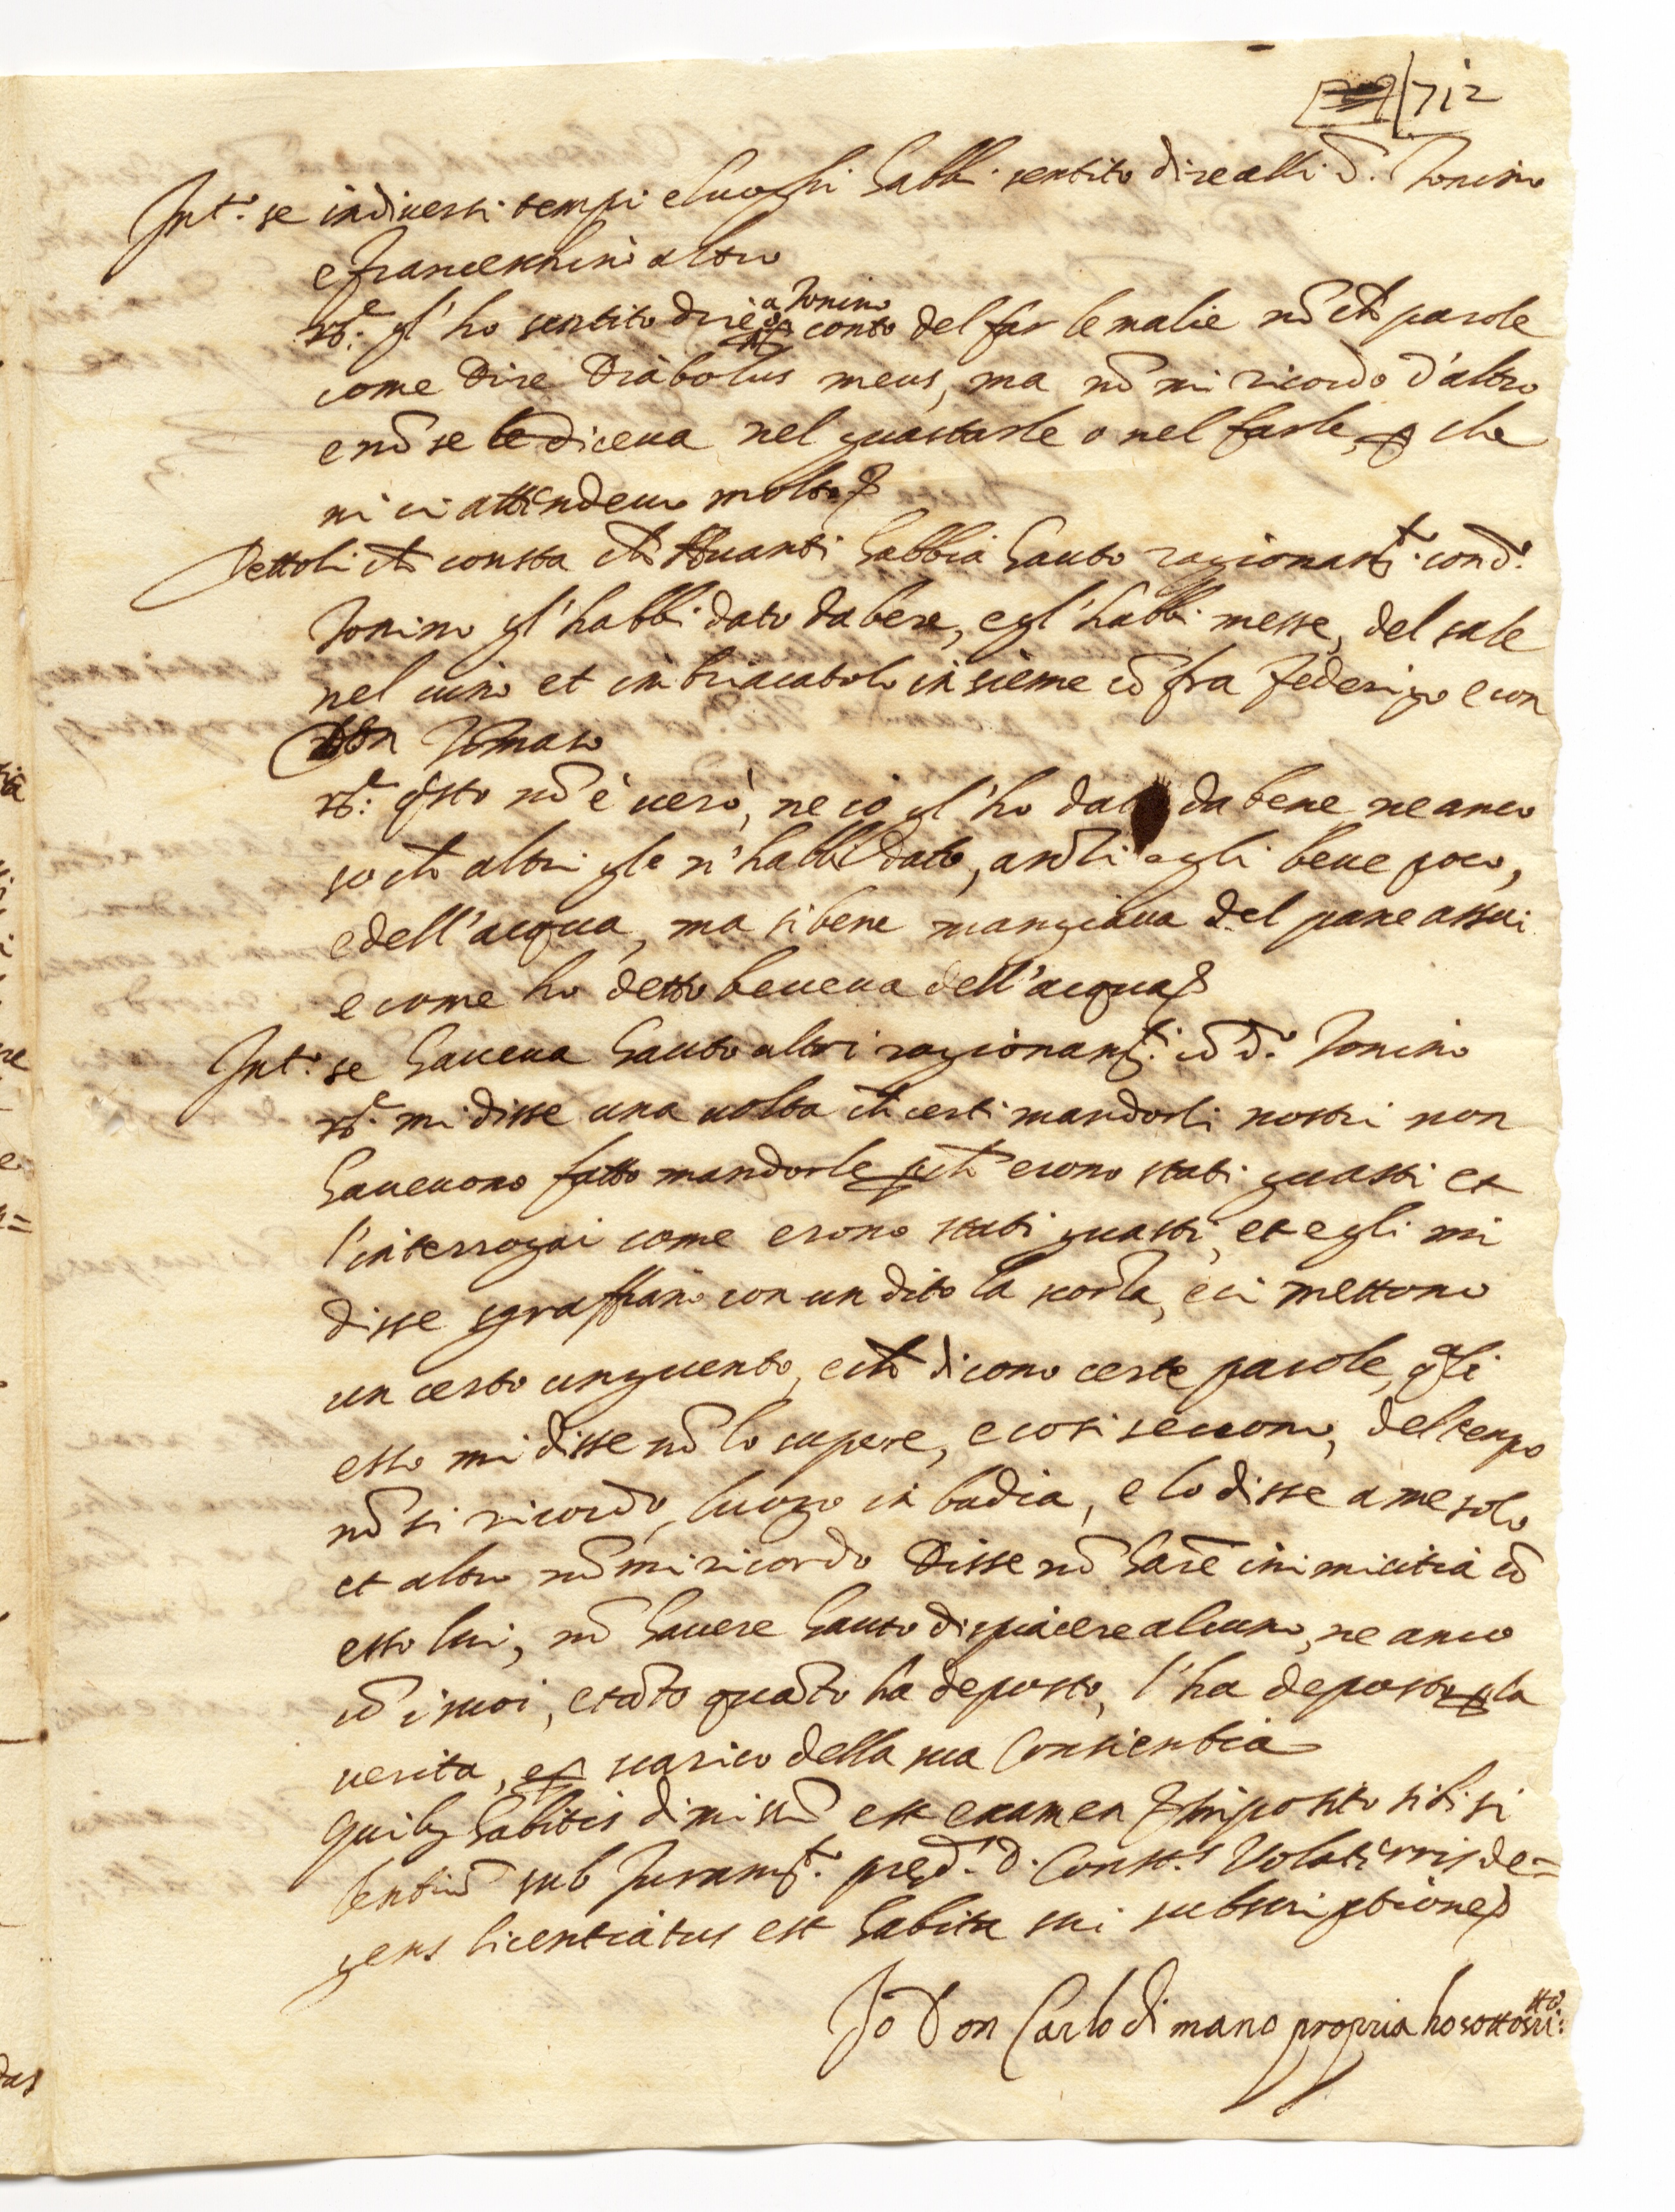 712
Int.º se in diversi tempi e luoghi habbi sentito dire alli d.ⁱ Tonino
e Franceschino altro
R.e gl'ho sentito dire a Tonino p conto del far le malie nō ch parole
come dire Diabolus meus, ma nō mi ricordo d'altro
e nō se le diceva nel guastarle o nel farle, p che
ni ci attendevo molto
Dettoli ch consta ch avanti habbia hauto ragionamti. con d.º
Tonino gl'habbi dato da bere, e gl'habbi messe, del sale
nel vino et imbriacatolo insieme cō fra Federigo e con
Don Tomaso
R.e: qsto nō è vero, ne io gl'ho dato da bere ne anco
so ch altri gle n'habbi dato, anzi egli beve poco,
e dell'acqua, ma si bene mangiava del pane assai
e come ho detto beveva dell'acqua
Int.º se haveva hauto altri ragionamti. cō d.º Tonino
R.e mi disse una volta ch certi mandorli nostri non
havevono fatto mandorle pch erono stati guasti et
l'interrogai come erono stati guasti, et egli mi
disse sgraffiano con un dito la scorza, e ci mettono
un certo unguento, e ch dicono certe parole, qli
esso mi disse nō lo sapere, e cosi seccono, del tempo
nō si ricordo, luogo in badia, e lo disse a me solo
et altro nō mi ricordo Disse nō havē inimicitia cō
esso lui, nō havere hauto dispiacere alcuno, ne anco
cō i suoi, e tāto quāto ha deposto, l'ha deposto p la
verita, e p scarico della sua Conscientia
Quibȝ habitis dimissū est examen & imposito sibi si
lentiū sub Juramto. pred.s d. Cons.s Volaterris de=
gens licentiatus est habita sui subscriptione
Io Don Carlo di mano propria ho sottoscritto